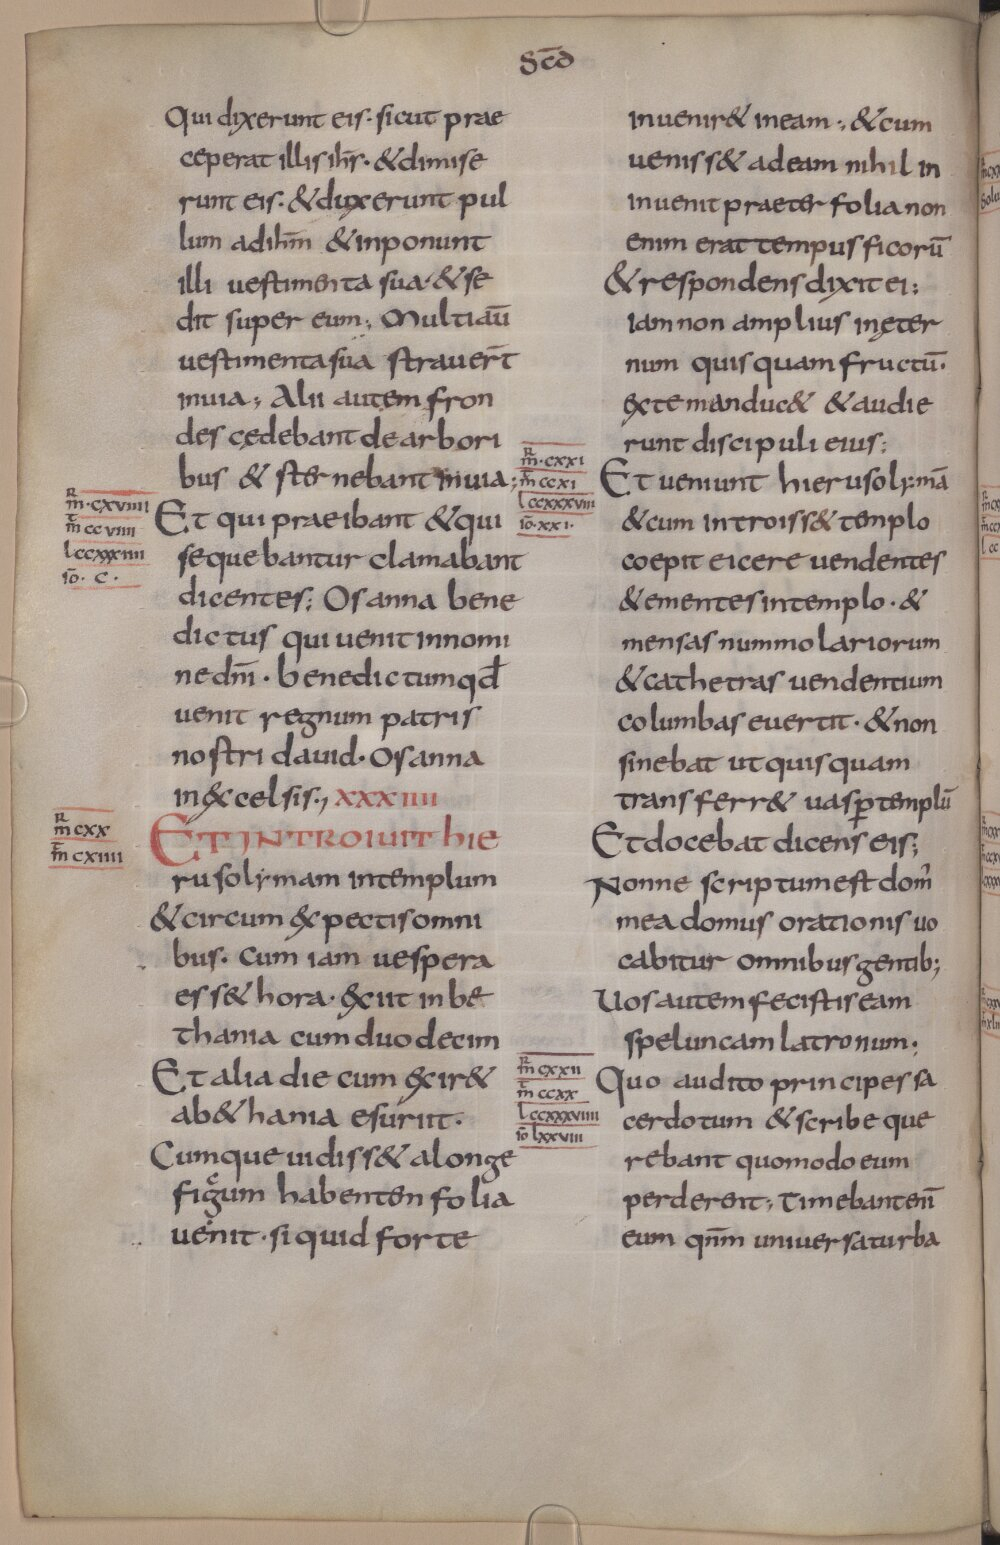 Scd̄
Qui dixerunt eis· sicut prae
ceperat illis ih̄s· & dimise
runt eis· & duxerunt pul
lum ad ih̄m & inponunt
illi uestimenta sua· & se
dit super eum; Multi aū
uestimenta sua strauer̄t
in uia; Alii autem fron
des cędebant de arbori
bus & sternebant in uia;
m̄·cxviiii
m̄ ccviiii
l ccxxxiiii
iō· c·
Et qui praeibant & qui
sequebantur clamabant
dicentes; Osanna bene
dictus qui uenit in nomi
ne dn̄i· benedictum qd̄
uenit regnum patris
nostri dauid· Osanna
in excelsis·, xxxiiii
m̄ cxx
m̄ cxiiii
ET INTROIUIT hie
rusolymam in templum
& circum expectis omni
bus· Cum iam uespera
ess& hora· exiit in be
thania cum duodecim
Et alia die cum exir&
a b&hania esuriit·
Cumque uidiss& a longe
figum habentem folia
uenit· si quid forte
inuenir& in eam·, & cum
ueniss& ad eam nihil in
inuenit praeter folia non
enim erat tempus ficorū
& respondens dixit ei;
Iam non amplius in ęter
num quisquam fructū·
ex te manduc& & audie
runt discipuli eius;
m̄·cxxi
m̄ ccxi
l ccxxxviii
iō·xxi·
Et ueniunt hierusolymā
& cum introiss& templo
coepit eicere uendentes
& ementes in templo· &
mensas nummolariorum
& cathetras uendentium
columbas euertit· & non
sinebat ut quisquam
transferr& uas p̱ templū
Et docebat dicens eis;
Nonne scriptum est dom̄
mea domus orationis uo
cabitur omnibus gentib;
Uos autem fecistis eam
speluncam latronum·
m̄ cxxii
m̄ ccxx
l ccxxxviiii
iō lxxviii
Quo audito principes sa
cerdotum & scribe que
rebant quomodo eum
perderent; Timebant eni̅
eum qn̄m uniuersa turba